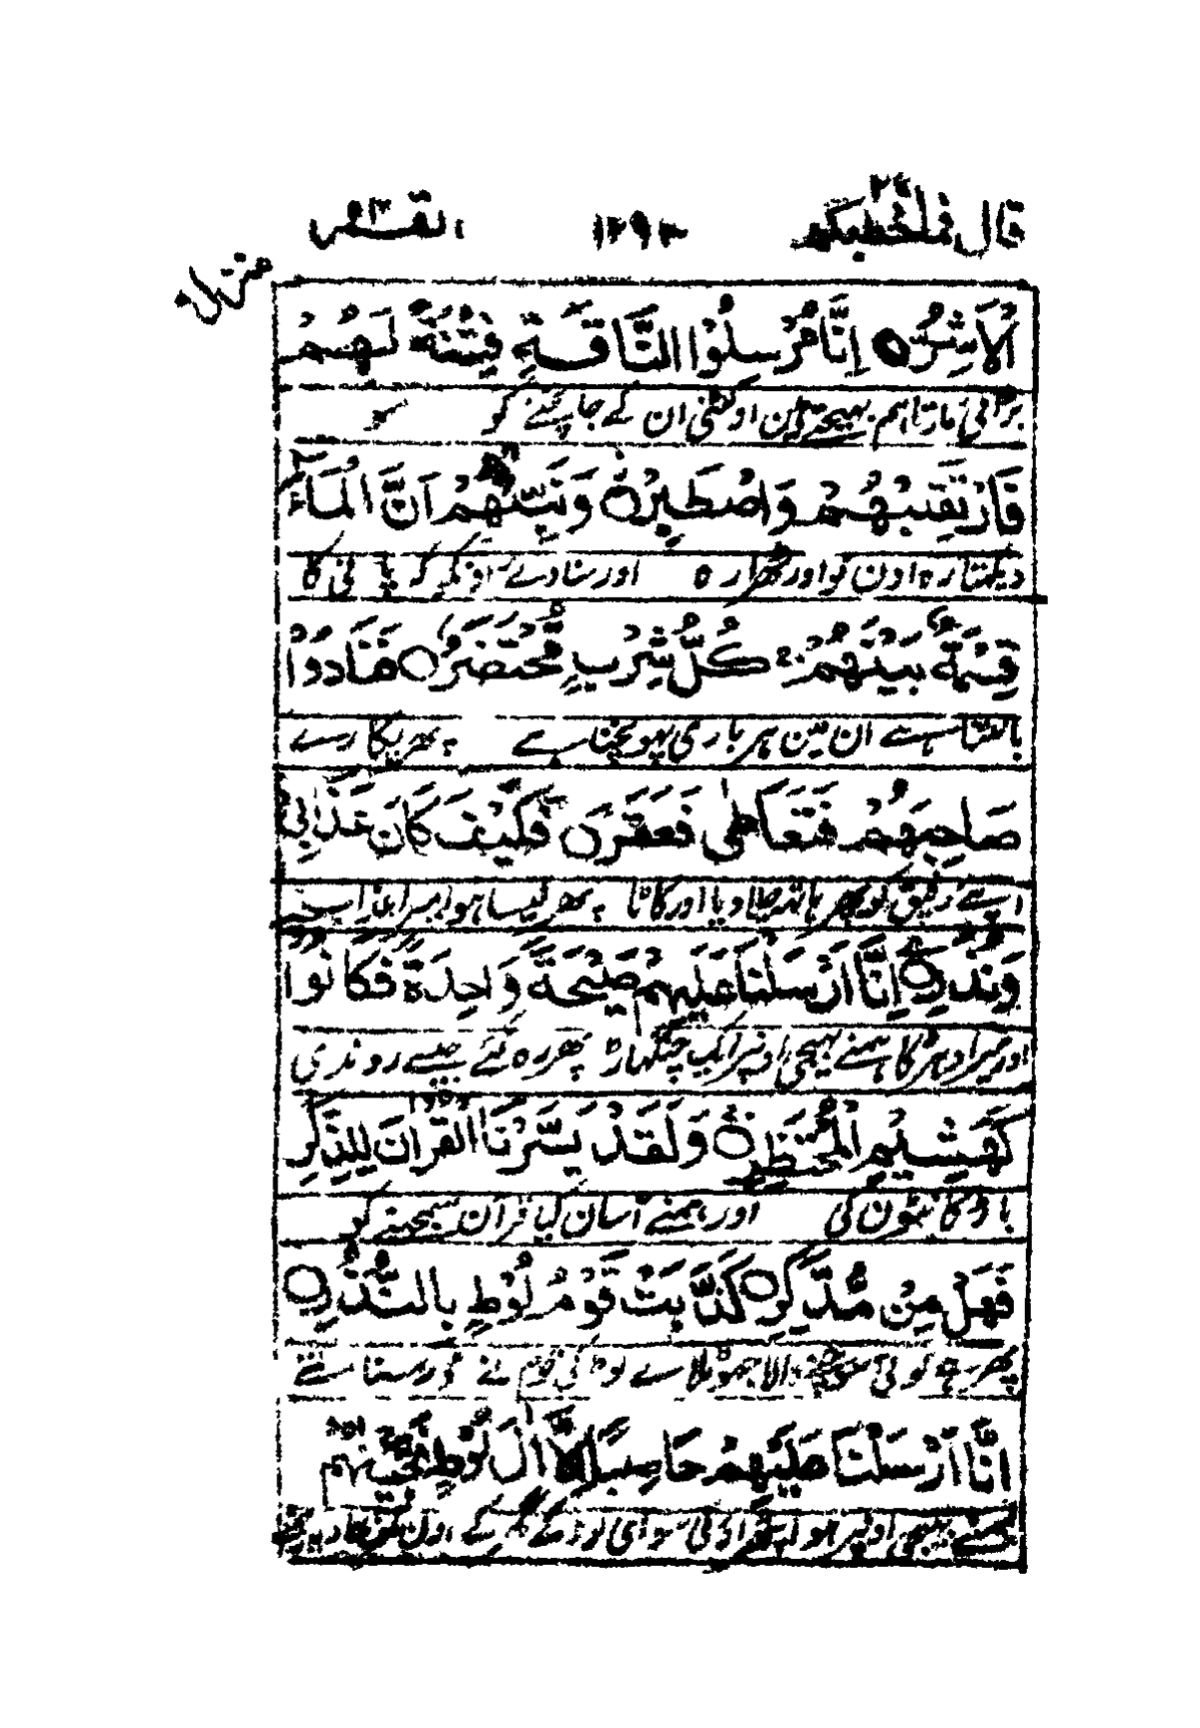 قال فما خطبكم ٢٧ ١٢٩٣ القمر
منزل
الْاَشِرُ ○ اِنَّا مُرْسِلُوا النَّاقَةِ فِتْنَةً لَهُمْ
بڑائی مارتا ہم بھیجتے ہین اونٹنی ان کے جانچنے کو
فَارْتَقِبْهُمْ وَاصْطَبِرْ ○ وَنَبِّئْهُمْ اَنَّ الْمَاءَ
دیکھتا رہ اون کو اور ٹھہرا رہ اور سنا دے اونکو کہ پانی کا
قِسْمَةٌ بَيْنَهُمْ كُلُّ شِرْبٍ مُّحْتَضَرٌ ○ فَنَادَوْا
بانٹا ہے ان مین ہر باری پہونچنا ہے پھر پکارے
صَاحِبَهُمْ فَتَعَاطٰى فَعَقَرَ ○ فَكَيْفَ كَانَ عَذَابِيْ
اپنے رفیق کو پھر ہاتھ چلایا اور کاٹا پھر کیسا ہوا میرا عذاب
وَنُذُرِ ○ اِنَّا اَرْسَلْنَا عَلَيْهِمْ صَيْحَةً وَّاحِدَةً فَكَانُوْا
اور میرا ڈر کا ہمنے بھیجی اونپر ایک چنگھاڑ پھر رہ گئے جیسے روندی
كَهَشِيْمِ الْمُحْتَظِرِ ○ وَلَقَدْ يَسَّرْنَا الْقُرْاٰنَ لِلذِّكْرِ
باڑ کانٹون کی اور ہمنے آسان کیا قرآن سمجھنے کو
فَهَلْ مِنْ مُّدَّكِرٍ ○ كَذَّبَتْ قَوْمُ لُوْطٍ بِالنُّذُرِ ○
پھر ہے کوئی سوچنے والا جھٹلائے لوط کی قوم نے ڈر سنانے
اِنَّا اَرْسَلْنَا عَلَيْهِمْ حَاصِبًا اِلَّا اٰلَ لُوْطٍ نَجَّيْنٰهُمْ
ہمنے بھیجی اونپر سوای لوط کے گھر کے اون کو